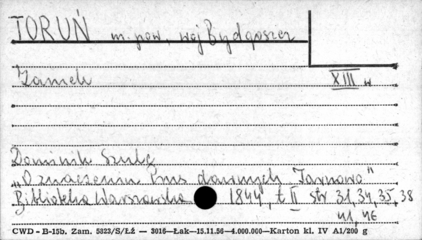 TORUŃ m. pow. woj Bydgoszcz
Zamek XIII w
Dominik Szulc
"O znaczeniu Prus dawnych Tarnowo"
Biblioteka Warszawska 1844, t II str 31, 34, 35, 38
41, 46
CWD - B-15b. Zam. 5823/S/Łź — 3016—Łak—15.11.56—4.000.000—Karton kl. IV A1/200 g